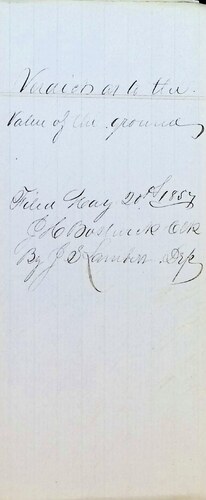 Verdict as to the
Value of the ground
Filed May 20th 1857
J H Bostwick Clk
By J S Lambert Dep